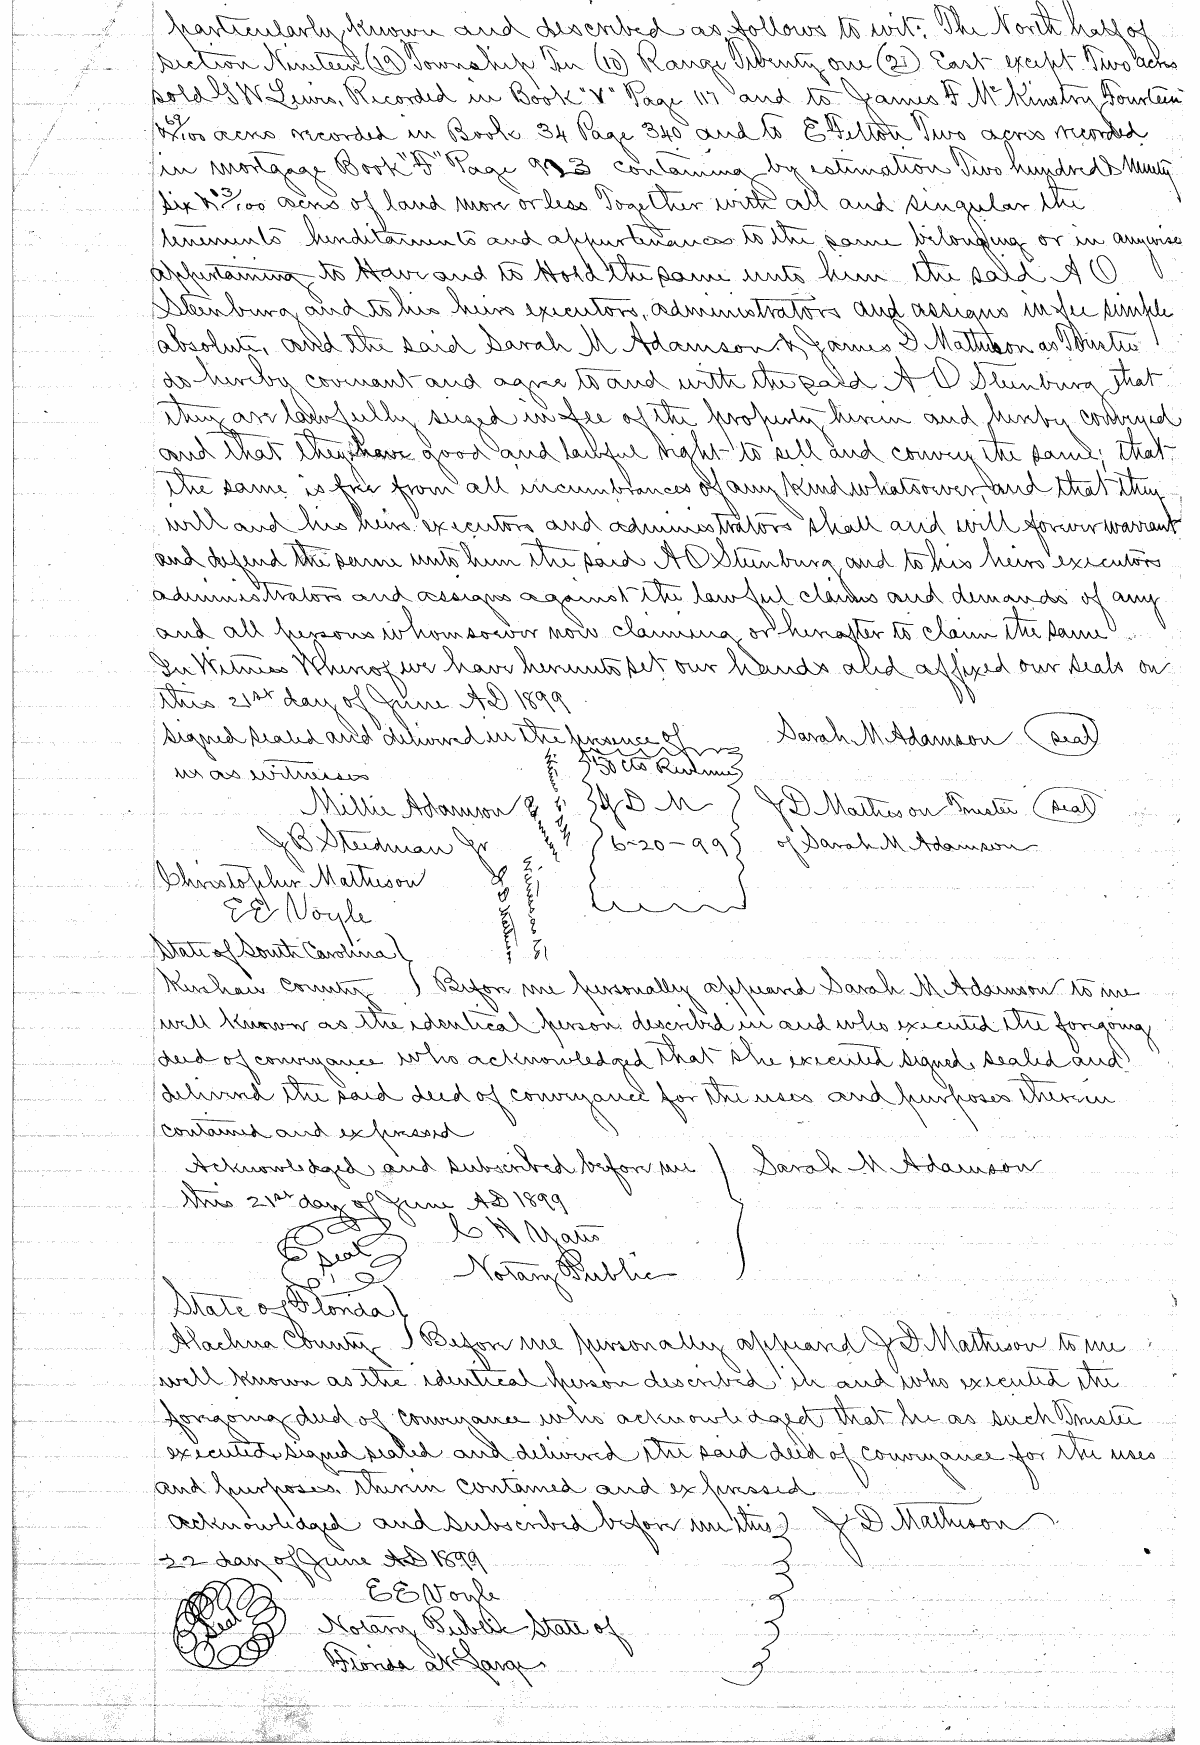 particularly known and described as follows to wit: The North half of
section Nineteen (19) Township Ten (10) Range Twenty one (21) East except Two acres
sold G W Lewis, Recorded in Book "V" Page 117 and to James F McKinstry Fourteen
& 69/100 acres recorded in Book 34 Page 340 and to E Felton Two acres recorded
in mortgage Book "F" Page containing by estimation Two hundred & Ninety
six & 3/100 acres of land more or less Together with all and singular the
tenements herditaments and appurtenances to the same belonging or in anywise
appertaining to Have and to Hold the same unto him the said A O
Steenburg and to his heirs executors, administrators and assigns in fee simple
absolute, and the said Sarah M Adamson & James D Matheson as Trustee
do hereby covenant and agree to and with the said A O Steenburg that
they are lawfully seized in fee of the property herein and hereby conveyed
and that they have good and lawful right to sell and convey the same; that
the same is free from all incumbrances of any kind whatsoever, and that they
will and his heirs executors and administrators shall and will forever warrant
and defend the same unto him the said A O Steenburg and to his heirs executors
administrators and assigns against the lawful claims and demands of any
and all persons whomsoever now claiming or hereafter to claim the same
In Witness Whereof we have hereunto set our hands and affixed our seals on
this 21st day of June AD 1899
signed sealed and delivered in the presence of Sarah M Adamson seal
us as witnesses 50 cts Revenue
Millie Adamson J D M J D Matheson Trustee seal
J B Steedman Jr 6-20-99 of Sarah M Adamson
Christopher Matheson
E E Voyle
State of South Carolina
Kershaw County Before me personally appeared Sarah M Adamson to me
well known as the identical person described in and who executed the foregoing
deed of conveyance who acknowledged that she executed signed, sealed and
delivered the said deed of conveyance for the uses and purposes therein
contained and expressed
Acknowledged and subscribed before me Sarah M Adamson
this 21st day of June AD 1899
seal C W Yates
Notary Public
State of Florida
Alachua County Before me personally appeared J D Matheson to me
well known as the identical person described in and who executed the
foregoing deed of conveyance who acknowledged that he as such Trustee
executed, signed sealed and delivered the said deed of conveyance for the uses
and purposes therein contained and expressed
Acknowledged and subscribed before me this J D Matheson
22 day of June AD 1899
E E Voyle
seal Notary Public State of
Florida at Large